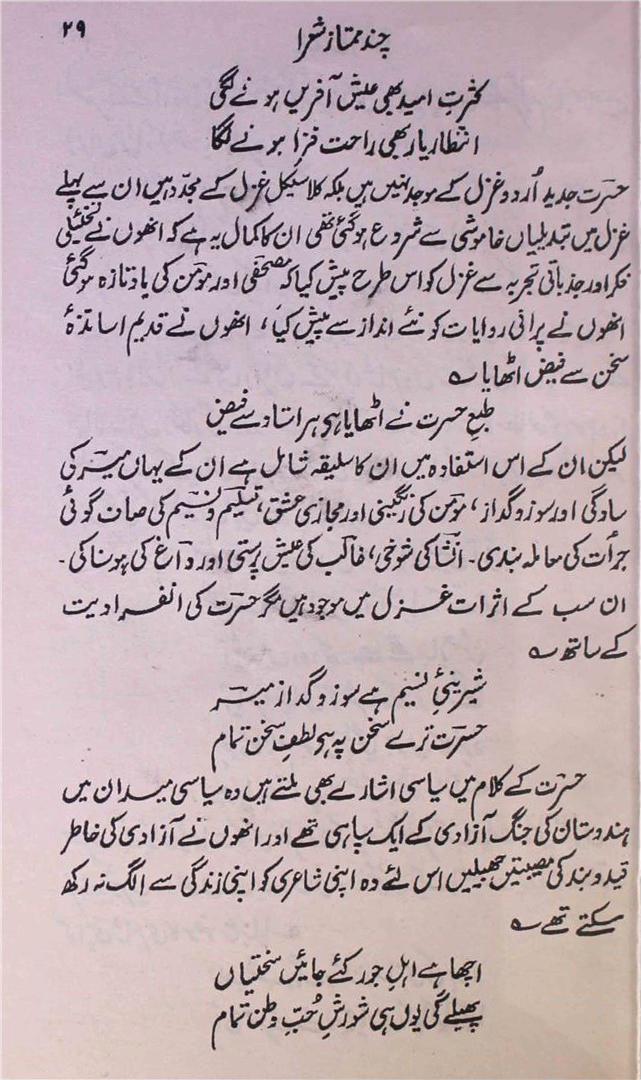 ۲۹
چند ممتاز شعرا
کثرتِ امید بھی عیش آفریں ہونے لگی
انتظارِ یار بھی راحت فزا ہونے لگا
حسرت جدید اُردو غزل کے موجد نہیں ہیں بلکہ کلاسیکل غزل کے مجدّد ہیں ان سے پہلے
غزل میں تبدیلیاں خاموشی سے شروع ہو گئی تھی ان کا کمال یہ ہے کہ انھوں نے تخئیلی
فکر اور جذباتی تجربہ سے غزل کو اس طرح پیش کیا کہ مصحفی اور مومن کی یاد تازہ ہو گئی
انھوں نے پرانی روایات کو نئے انداز سے پیش کیا، انھوں نے قدیم اساتذۂ
سخن سے فیض اٹھایا ؎
طبعِ حسرت نے اٹھایا ہی ہر استاد سے فیض
لیکن ان کے اس استفادہ میں ان کا سلیقہ شامل ہے ان کے یہاں میر کی
سادگی اور سوز و گداز، مومن کی رنگینی اور مجازی عشق، تسلیم و نسیم کی صاف گوئی
جرأت کی معاملہ بندی۔ انشا کی شوخی، غالب کی عیش پرستی اور داغ کی ہوسناکی۔
ان سب کے اثرات غزل میں موجود ہیں مگر حسرت کی انفرادیت
کے ساتھ ؎
شیرینیِٔ نسیم ہے سوز و گداز میر
حسرت ترے سخن پہ ہی لطفِ سخن تمام
حسرت کے کلام میں سیاسی اشارے بھی ملتے ہیں وہ سیاسی میدان میں
ہندوستان کی جنگ آزادی کے ایک سپاہی تھے اور انھوں نے آزادی کی خاطر
قید و بند کی مصیبتیں جھیلیں اس لئے وہ اپنی شاعری کو اپنی زندگی سے الگ نہ رکھ
سکتے تھے ؎
اچھا ہے اہلِ جور کئے جائیں سختیاں
پھیلے گی یوں ہی شورشِ حُبِّ وطن تمام